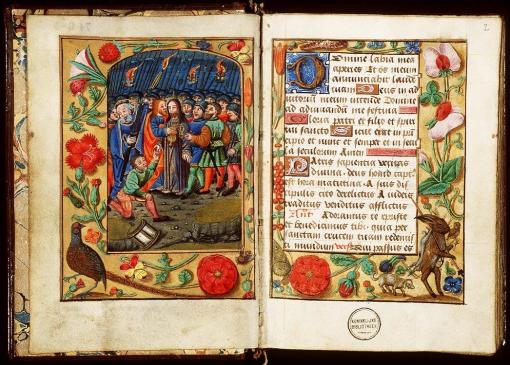 2
Domine labia mea
aperies Et os meum
annunciabit laudē
tuam Deus in ad
iutorium meum intende Domine
ad adiuvandū me festina
Gloria patri et filio et spiri
tui sancto Sicut erat in prī
cipio et nunc et semper et in secul
a seculorum Amen
Patris sapientia veritas
divina . deus homo capt
est hora matutina . A suis dis
cipulis cito derelictus A iudeis
traditus venditus afflictus
Adoramus te christe
et benedicimus tibi . quia per
sanctam crucem tuam redemis
ti mundum Qui passus es
KONINKLIJKE
BIBLIOTHEEK